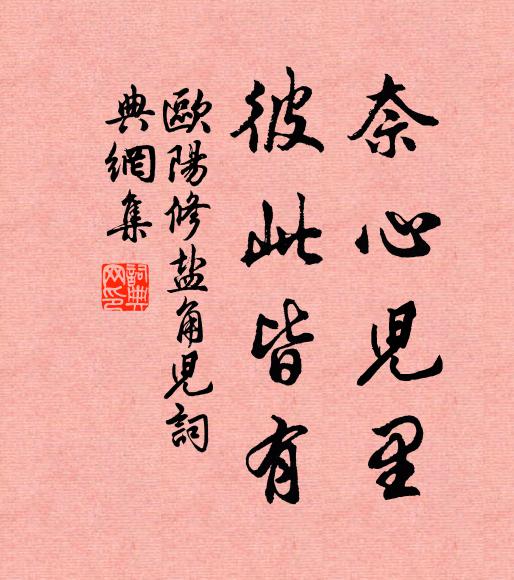 奈心児里
彼此皆有
歐陽修盐角児詞
典網集
詞典网印